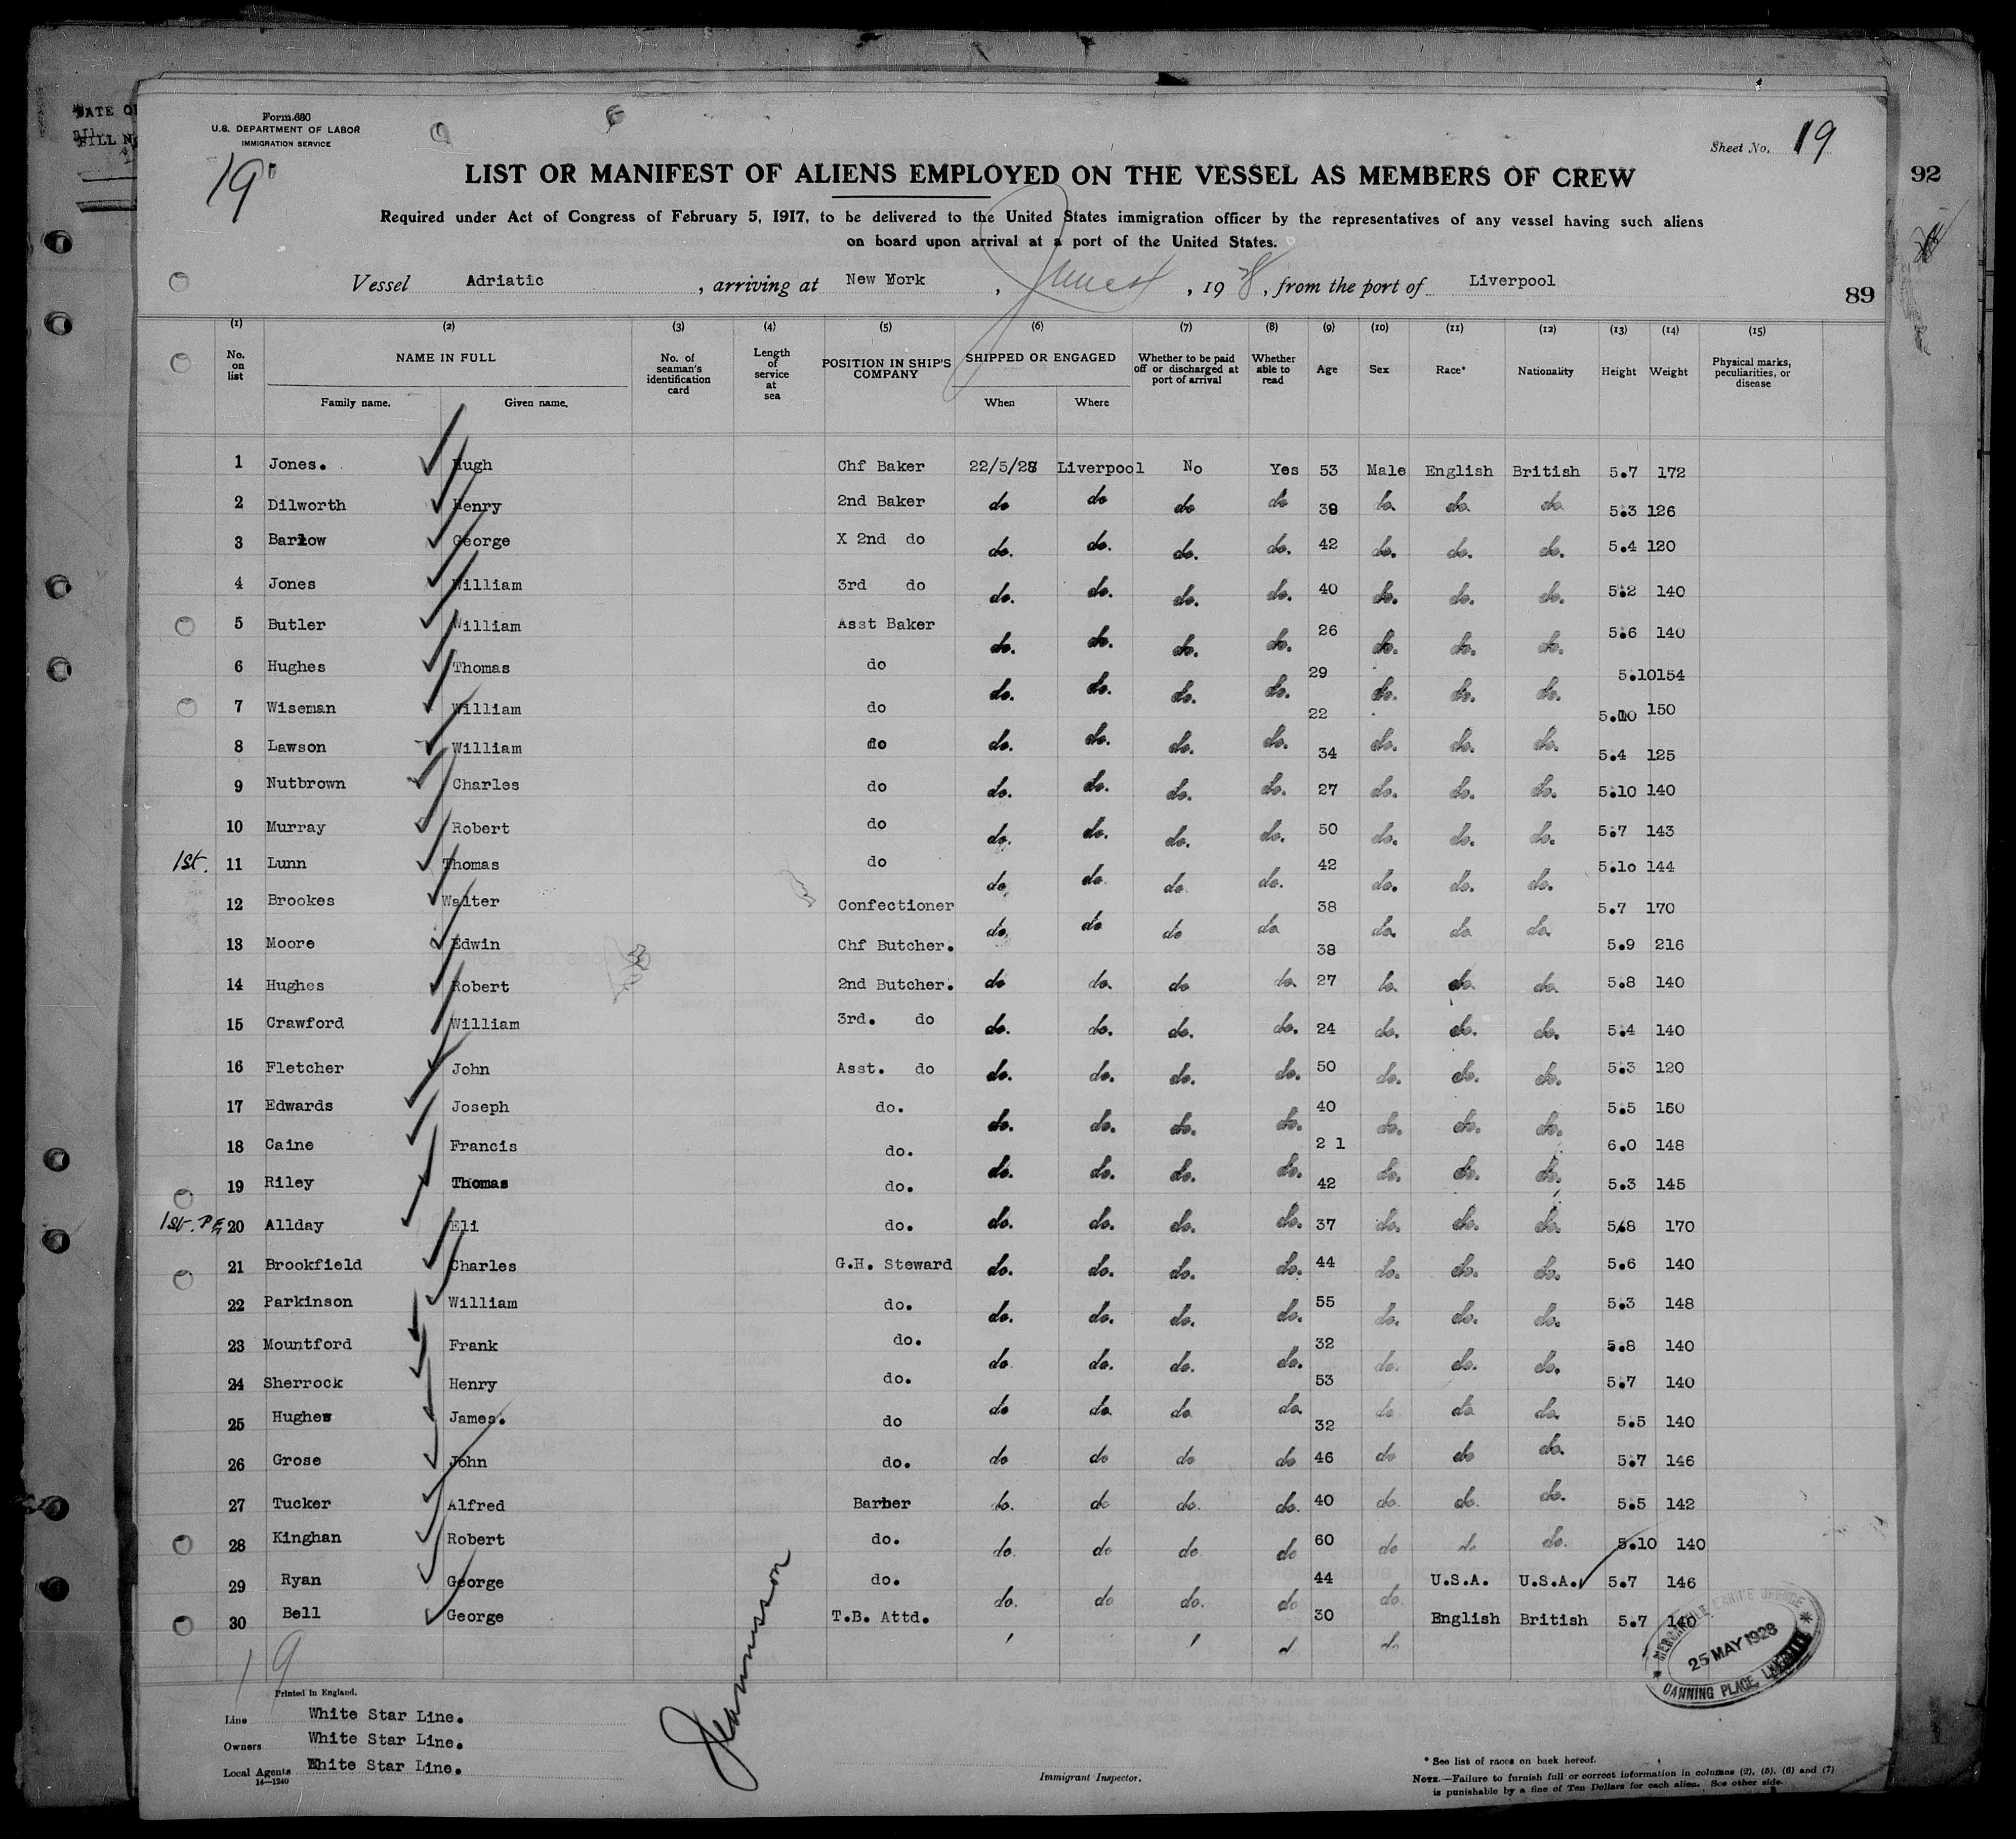 DATE O
BILL N
Form 680
U.S. DEPARTMENT OF LABOR
IMMIGRATION SERVICE
19
Sheet No. 19
92
LIST OR MANIFEST OF ALIENS EMPLOYED ON THE VESSEL AS MEMBERS OF CREW
Required under Act of Congress of February 5, 1917, to be delivered to the United States immigration officer by the representatives of any vessel having such aliens
on board upon arrival at a port of the United States.
Vessel Adriatic, arriving at New York, June, 1928, from the port of Liverpool
89
(1) (2) (3) (4) (5) (6) (7) (8) (9) (10) (11) (12) (13) (14) (15)
No. on list NAME IN FULL No. of seaman's identification card Length of service at sea POSITION IN SHIP'S COMPANY SHIPPED OR ENGAGED Whether to be paid off or discharged at port of arrival Whether able to read Age Sex Race* Nationality Height Weight Physical marks, peculiarities, or disease
Family name. Given name. When Where
1 Jones. Hugh Chf Baker 22/5/28 Liverpool No Yes 53 Male English British 5.7 172
2 Dilworth Henry 2nd Baker do do do do 39 do do do 5.3 126
3 Barlow George X 2nd do do. do. do. do. 42 do. do. do. 5.4 120
4 Jones William 3rd do do. do. do. do. 40 do. do. do. 5.2 140
5 Butler William Asst Baker do. do. do. do. 26 do. do. do. 5.6 140
6 Hughes Thomas do do. do. do. do. 29 do. do. do. 5.10 154
7 Wiseman William do 22 5.10 150
8 Lawson William do do. do. do. do. 34 do. do. do. 5.4 125
9 Nutbrown Charles do do. do. do. do. 27 do. do. do. 5.10 140
10 Murray Robert do do. do. do. do. 50 do. do. do. 5.7 143
1st. 11 Lunn Thomas do do. do. do. do. 42 do. do. do. 5.10 144
12 Brookes Walter Confectioner do. do do do 38 do. do do. 5.7 170
13 Moore Edwin Chf Butcher. 38 5.9 216
14 Hughes Robert 2nd Butcher. do do. do do. 27 do. do. do. 5.8 140
15 Crawford William 3rd. do do. do. do. do. 24 do. do. do. 5.4 140
16 Fletcher John Asst. do do. do. do. do. 50 do. do. do. 5.3 120
17 Edwards Joseph do. do. do. do. do. 40 do. do. do. 5.5 150
18 Caine Francis do. do. do. do. do. 2 1 do. do. do. 6.0 148
19 Riley Thomas do. 42 5.3 145
1st. P.E. 20 Allday Eli do. do. do. do. do. 37 do. do. do. 5.8 170
21 Brookfield Charles G.H. Steward do. do. do. do. 44 do. do. do. 5.6 140
22 Parkinson William do. do. do. do. do. 55 do. do. do. 5.3 148
23 Mountford Frank do. do. do. do. do. 32 do. do. do. 5.8 140
24 Sherrock Henry do. 53 5.7 140
25 Hughes James. do do do do do. 32 do do do. 5.5 140
26 Grose John do. do do do do 46 do do do. 5.7 146
27 Tucker Alfred Barber do. do do. do. 40 do. do. do. 5.5 142
28 Kinghan Robert do. do. do do do 60 do do do. 5.10 140
29 Ryan George do. do. do do. do 44 do. U.S.A. U.S.A. 5.7 146
30 Bell George T.B. Attd. 30 do. English British 5.7 140
19
MERCANTILE MARINE OFFICE
25 MAY 1928
CANNING PLACE, LIVERPOOL
Printed in England.
Line White Star Line.
Owners White Star Line.
Local Agents White Star Line.
14—1240
Immigrant Inspector.
* See list of races on back hereof.
NOTE.—Failure to furnish full or correct information in columns (2), (5), (6) and (7)
is punishable by a fine of Ten Dollars for each alien. See other side.